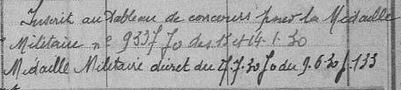 Inscrit au Tableau de concours pour la Médaille
Militaire n° 9337 Jo des 13 et 14.1.30
Médaille Militaire décret du 7.7.30 Jo du 9.6.30 f. 133